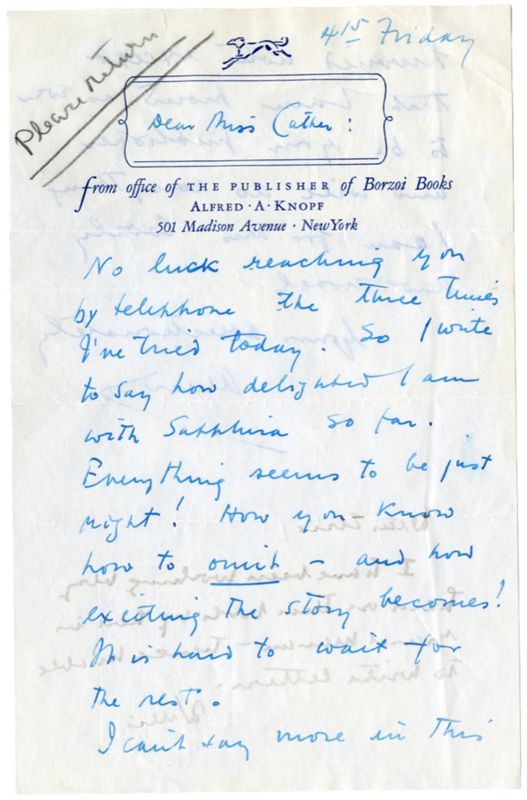 4 15 Friday
Please return
Dear Miss Cather:
from office of THE PUBLISHER of Borzoi Books
ALFRED · A · KNOPF
501 Madison Avenue · New York
No luck reaching you
by telephone the three times
I've tried today. So I write
to say how delighted I am
with Sapphira so far.
Everything seems to be just
right! How you know
how to omit – and how
exciting the story becomes!
It is hard to wait for
the rest.
I can't say more in this